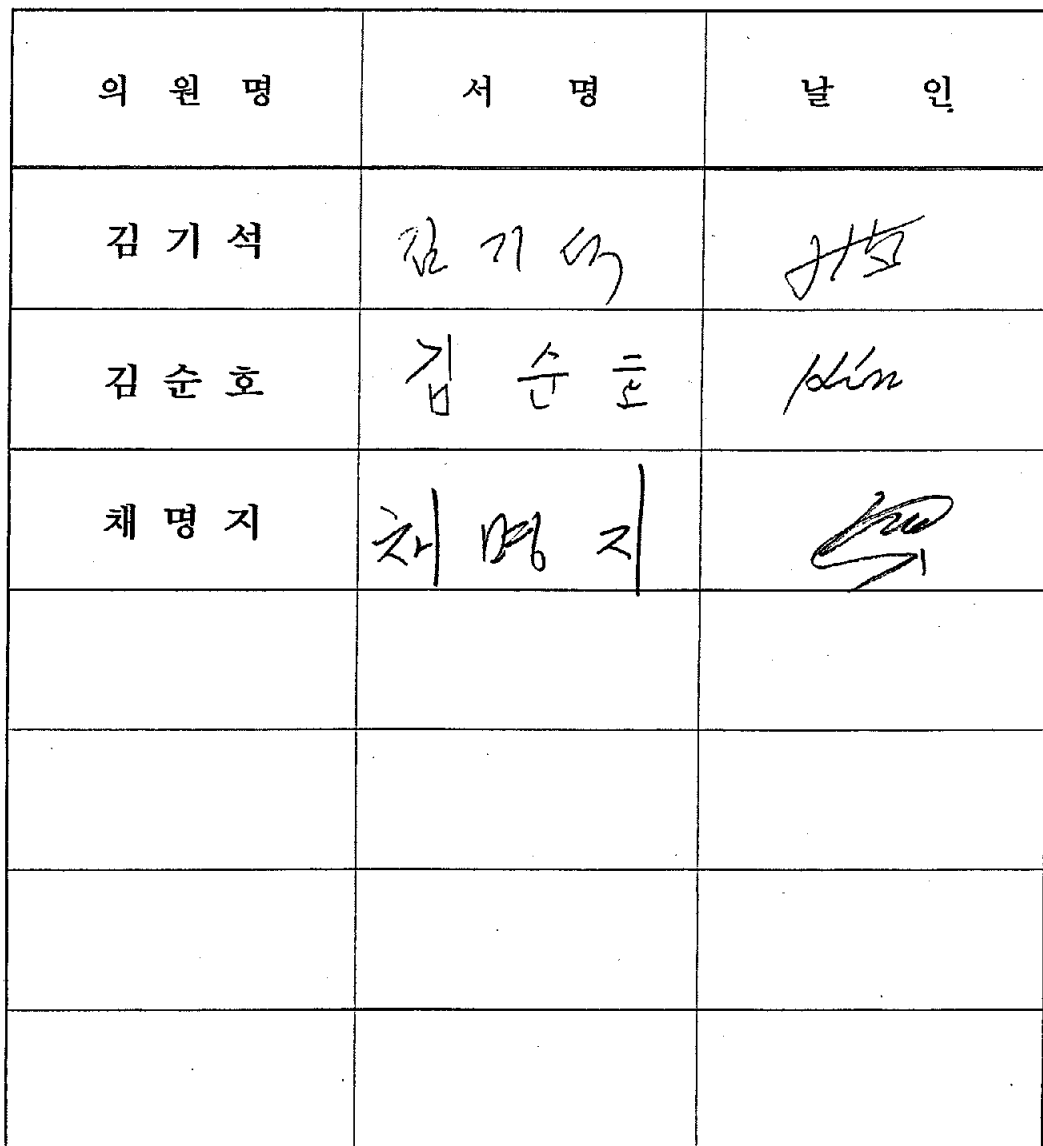 의 원 명 서 명 날 인
김 기 석 김 기 석
김 순 호 김 순 호 Kim
채 명 지 채 명 지